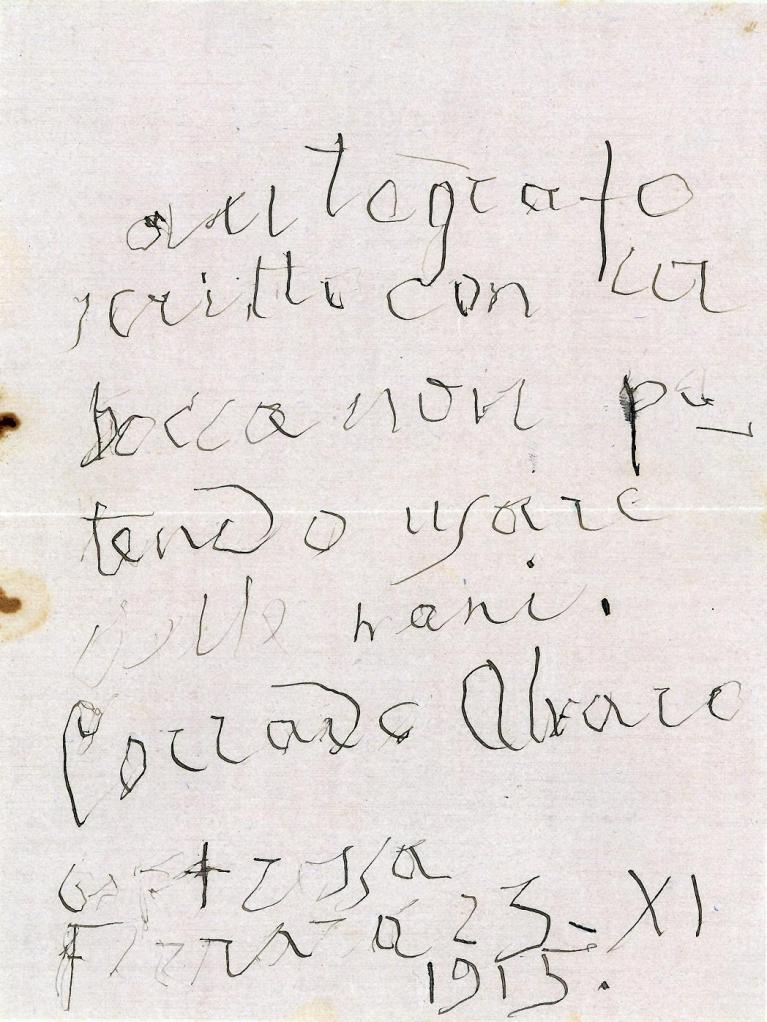 autografo
scritto con la
bocca non po-
tendo usare
delle mani.
Corrado Alvaro
Certosa
Ferrara 25-XI
1915.